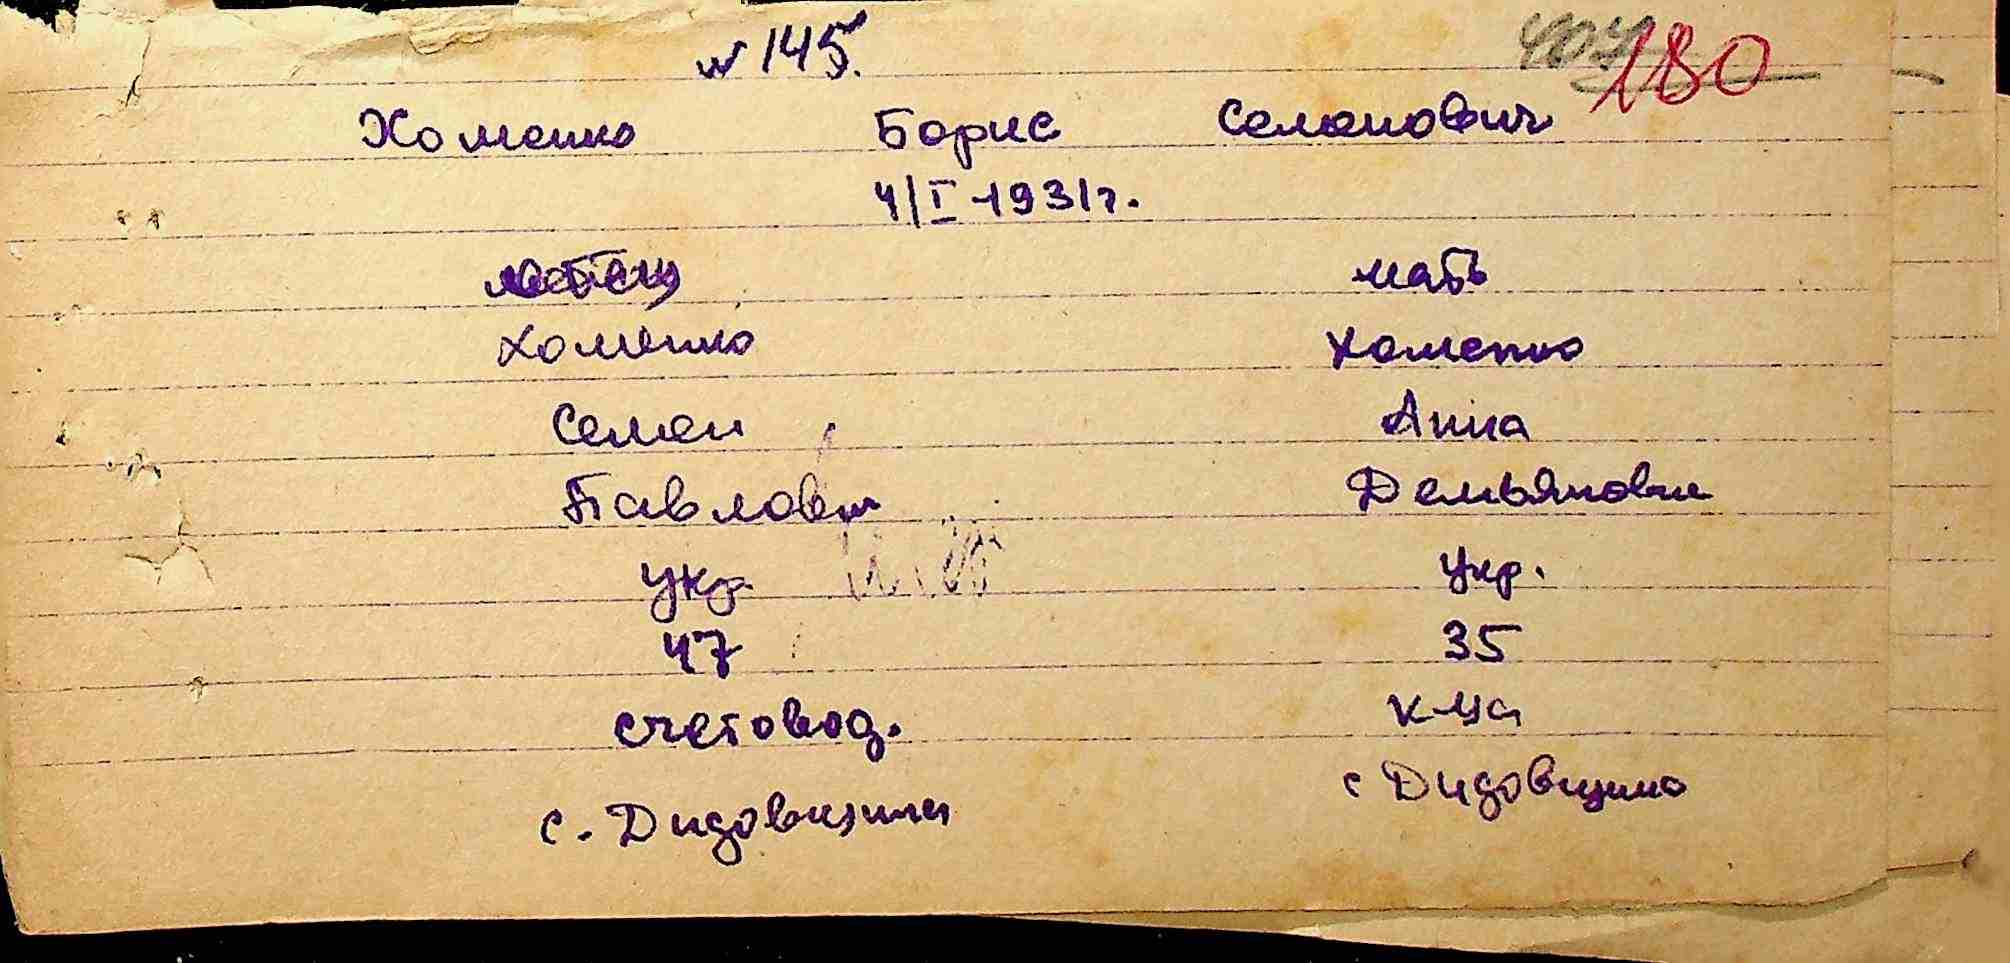 № 145.
180
Хоменко Борис Семенович
4/I -1931г.
отец мать
Хоменко Хоменко
Семен Анна
Павлович Демьяновна
укр. укр.
47 35
счетовод. к-ца
с. Дидовщина с Дидовщина